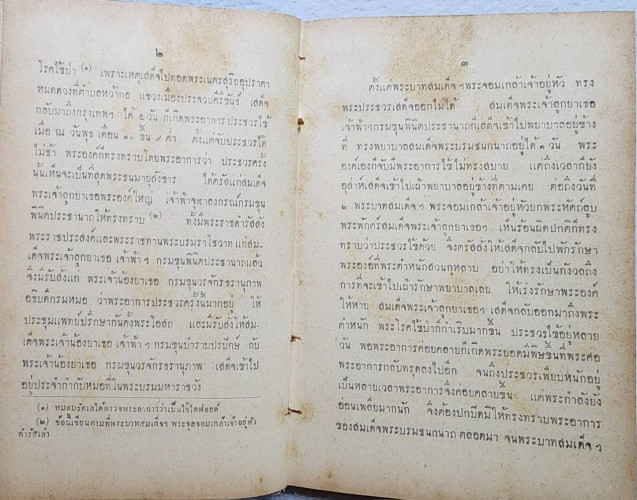 ๒
โรคไข้ป่า (๑) เพราะเหตุเสด็จไปทอดพระเนตรสุริยอุปราคา
หมดดวงที่ตำบลหว้ากอ แขวงเมืองประจวบคีรีขันธ์ เสด็จ
กลับมาถึงกรุงเทพฯ ได้ ๕ วัน ก็เกิดพระอาการประชวรไข้
เมื่อ ณ วันพุธ เดือน ๑๐ ขึ้น ๙ ค่ำ ตั้งแต่จับประชวรได้
ไม่ช้า พระองค์ก็ทรงทราบโดยพระอาการว่า ประชวรครั้ง
นั้นเห็นจะเป็นที่สุดพระชนมายุสังขาร ได้ตรัสแก่สมเด็จ
พระเจ้าลูกยาเธอพระองค์ใหญ่ เจ้าฟ้าจุฬาลงกรณ์กรมขุน
พินิตประชานาถให้ทรงทราบ (๒) ทั้งมีพระราชดำรัสสั่ง
พระราชประสงค์และพระราชทานพระบรมราโชวาท แก่สม-
เด็จพระเจ้าลูกยาเธอ เจ้าฟ้าฯ กรมขุนพินิตประชานาถแล้ว
จึงมีรับสั่งแก่ พระเจ้าน้องยาเธอ กรมขุนวรจักรธรานุภาพ
อธิบดีกรมหมอ ว่าพระอาการประชวรครั้งนี้มากอยู่ ให้
ประชุมแพทย์ปรึกษากันตั้งพระโอสถ และมีรับสั่งให้สม-
เด็จพระเจ้าน้องยาเธอ เจ้าฟ้าฯ กรมขุนบำราบปรปักษ์ กับ
พระเจ้าน้องยาเธอ กรมขุนวรจักรธรานุภาพ เสด็จเข้าไป
อยู่ประจำกำกับหมอที่ในพระบรมมหาราชวัง
(๑) หมอบรัดเลได้ตรวจพระอาการว่าเป็นไข้ไตฟอยด์
(๒) ข้อนี้เขียนตามที่พระบาทสมเด็จฯ พระจุลจอมเกล้าเจ้าอยู่หัว
ดำรัสเล่า
๓
ตั้งแต่พระบาทสมเด็จฯ พระจอมเกล้าเจ้าอยู่หัว ทรง
พระประชวรเสด็จออกไม่ได้ สมเด็จพระเจ้าลูกยาเธอ
เจ้าฟ้าฯ กรมขุนพินิตประชานาถก็เสด็จเข้าไปพยาบาลอยู่ข้าง
ที่ ทรงพยาบาลสมเด็จพระบรมชนกนาถอยู่ได้ ๑ วัน พระ
องค์เองก็จับมีพระอาการไข้ไม่ทรงสบาย แต่ถึงเวลาก็ยัง
อุส่าห์เสด็จเข้าไปเฝ้าพยาบาลอยู่ข้างที่ตามเคย ต่อถึงวันที่
๒ พระบาทสมเด็จฯ พระจอมเกล้าเจ้าอยู่หัวยกพระหัตถ์ลูบ
พระพักตร์สมเด็จพระเจ้าลูกยาเธอฯ เห็นร้อนผิดปกติก็ทรง
ทราบว่าประชวรไข้ด้วย จึงตรัสสั่งให้เสด็จกลับไปพักรักษา
พระองค์ที่พระตำหนักสวนกุหลาบ อย่าให้ทรงเป็นกังวลถึง
การที่จะเข้าไปเฝ้ารักษาพยาบาลเลย ให้เร่งรักษาพระองค์
ให้หาย สมเด็จพระเจ้าลูกยาเธอฯ เสด็จกลับออกมาถึงพระ
ตำหนัก พระโรคไข้ป่าก็กำเริบมากขึ้น ประชวรไข้อยู่หลาย
วัน พอพระอาการค่อยคลายก็เกิดพระยอดมีพิษขึ้นที่พระศอ
พระอาการกลับทรุดลงไปอีก จนถึงประชวรเพียบหนักอยู่
เป็นหลายเวลาพระอาการจึงค่อยคลายขึ้น แต่พระกำลังยัง
อ่อนเพลียมากนัก จึงต้องปกปิดมิให้ทรงทราบพระอาการ
ของสมเด็จพระบรมชนกนาถ ตลอดมา จนพระบาทสมเด็จฯ